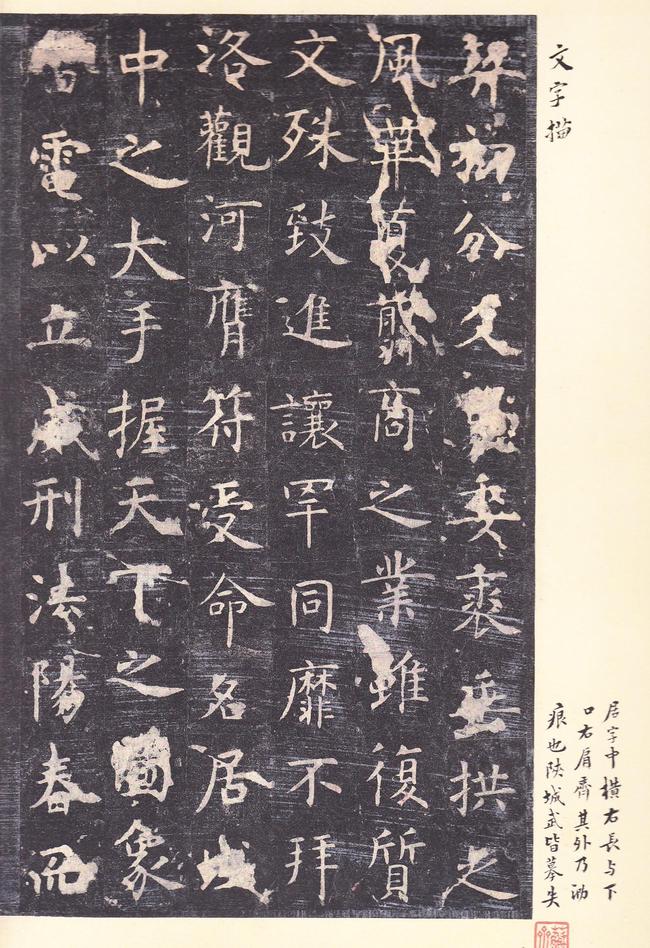 文字描
居字中橫右長与下
口右肩齊其外乃泐
痕也陝城武皆摹失
契初分爻象委裘垂拱之
風華夏翦商之業雖復質
文殊致進讓罕同靡不拜
洛觀河膺符受命名居域
中之大手握天下之圖象
雷電以立威刑法陽春而